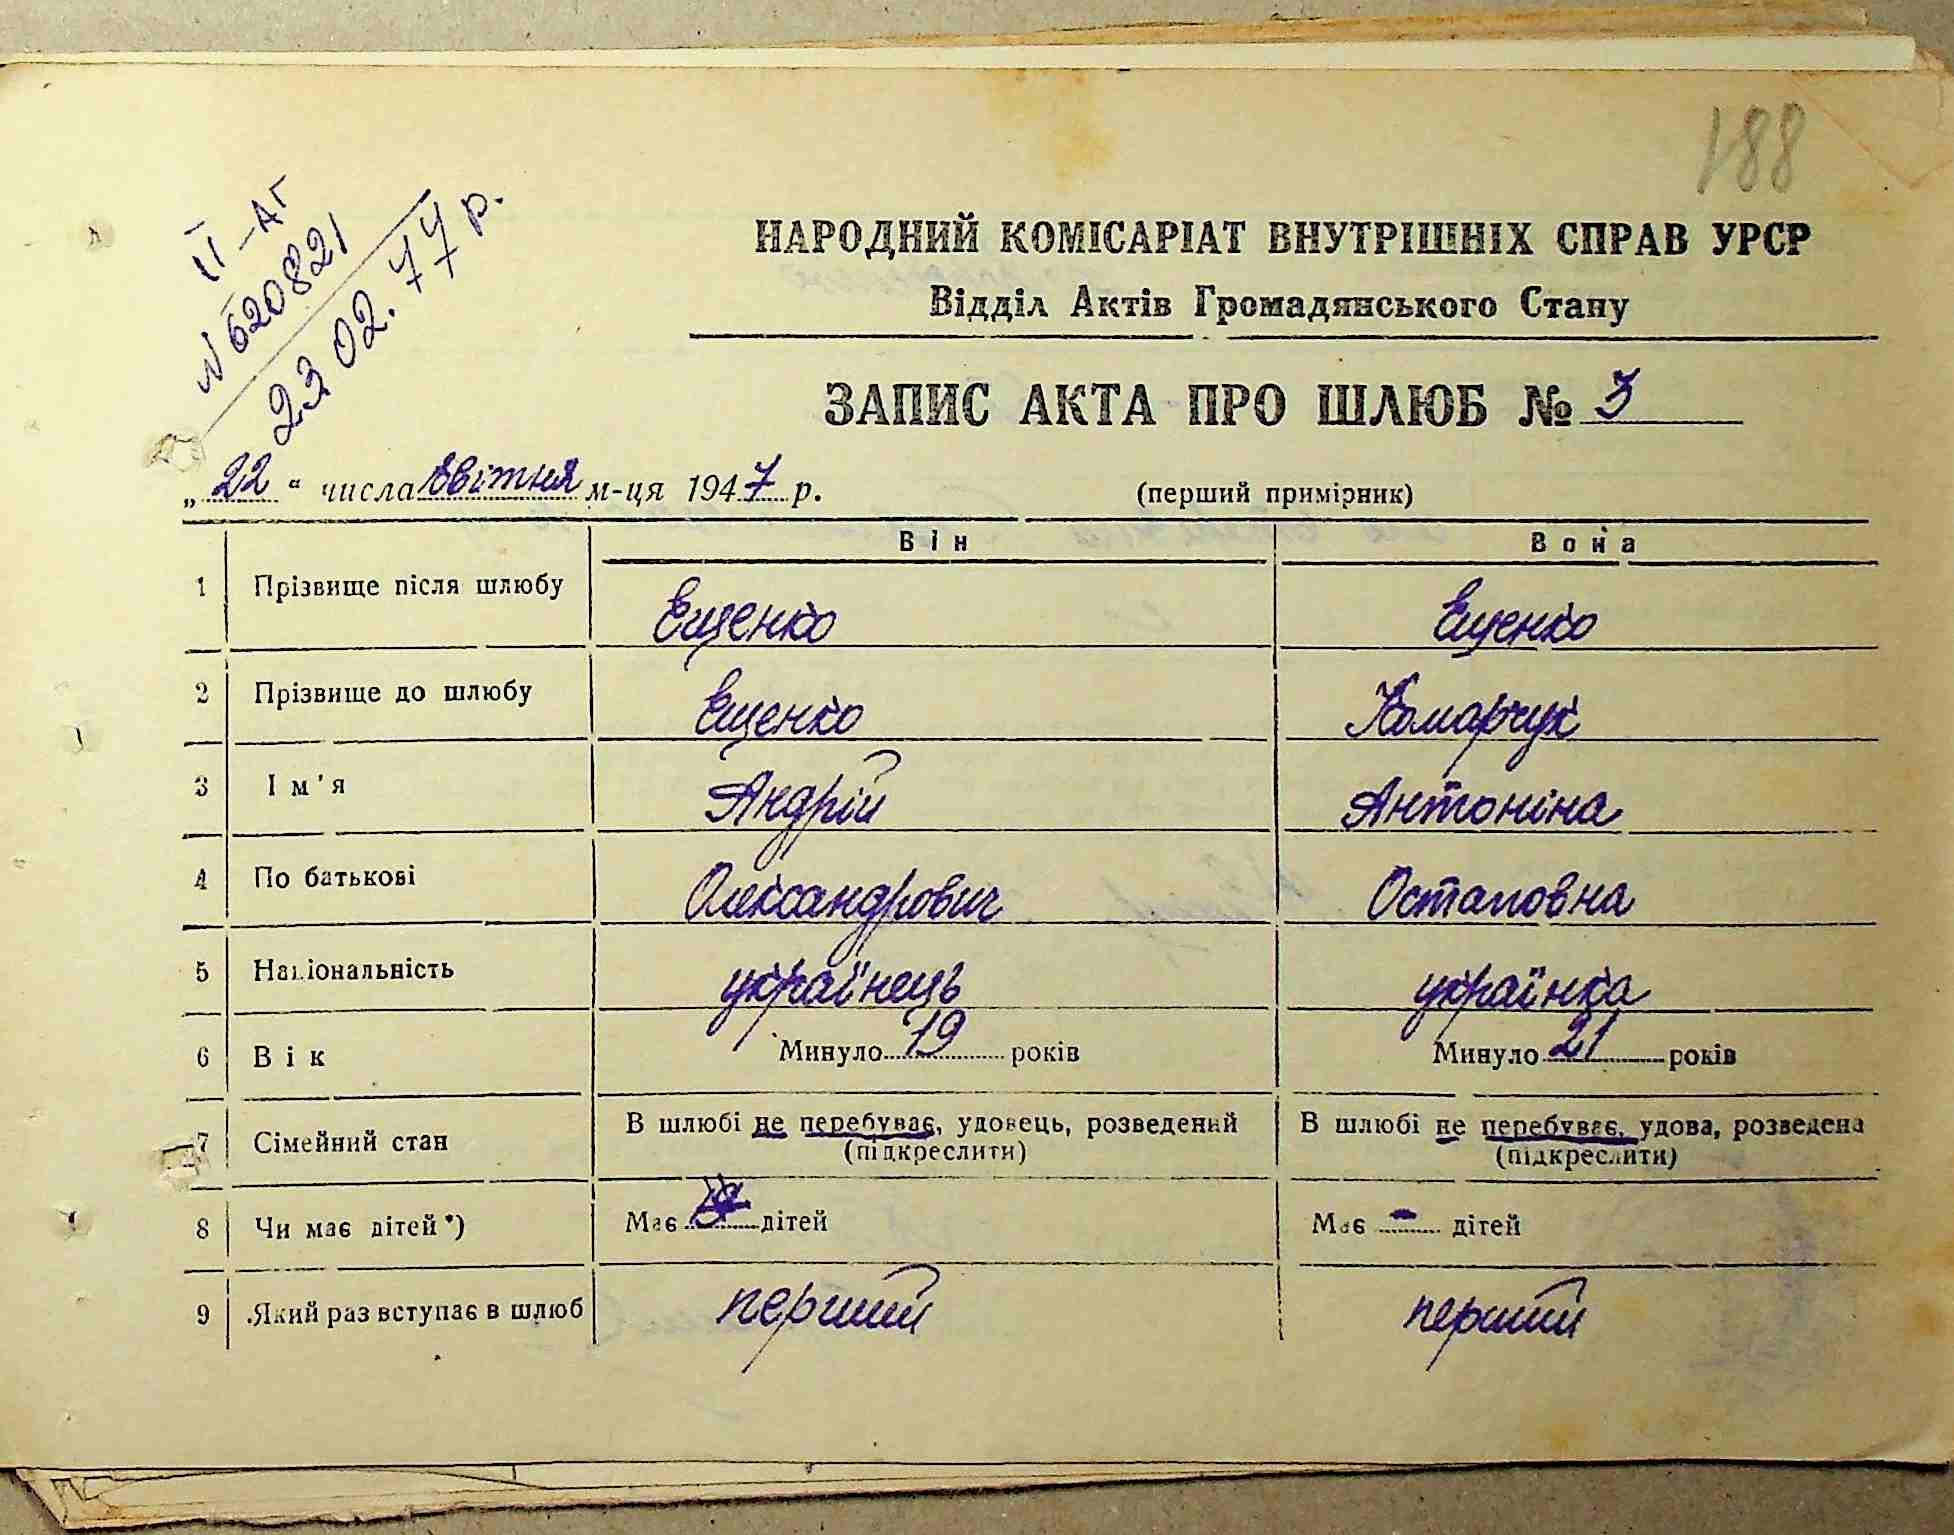 188
II-АГ
N 620821
23 02. 77 р.
НАРОДНИЙ КОМІСАРІАТ ВНУТРІШНІХ СПРАВ УРСР
Відділ Актів Громадянського Стану
ЗАПИС АКТА ПРО ШЛЮБ №
„22“ числа квітня м-ця 1947 р. (перший примірник)
Він Вона
1 Прізвище після шлюбу Єщенко Єщенко
2 Прізвище до шлюбу Єщенко Комарчук
3 Ім'я Андрій Антоніна
4 По батькові Олександрович Остаповна
5 Національність українець українка
6 Вік Минуло 19 років Минуло 21 років
7 Сімейний стан В шлюбі не перебуває, удовець, розведений В шлюбі не перебуває, удова, розведена
(підкреслити) (підкреслити)
8 Чи має дітей*) Має дітей Має - дітей
9 Який раз вступає в шлюб перший перший